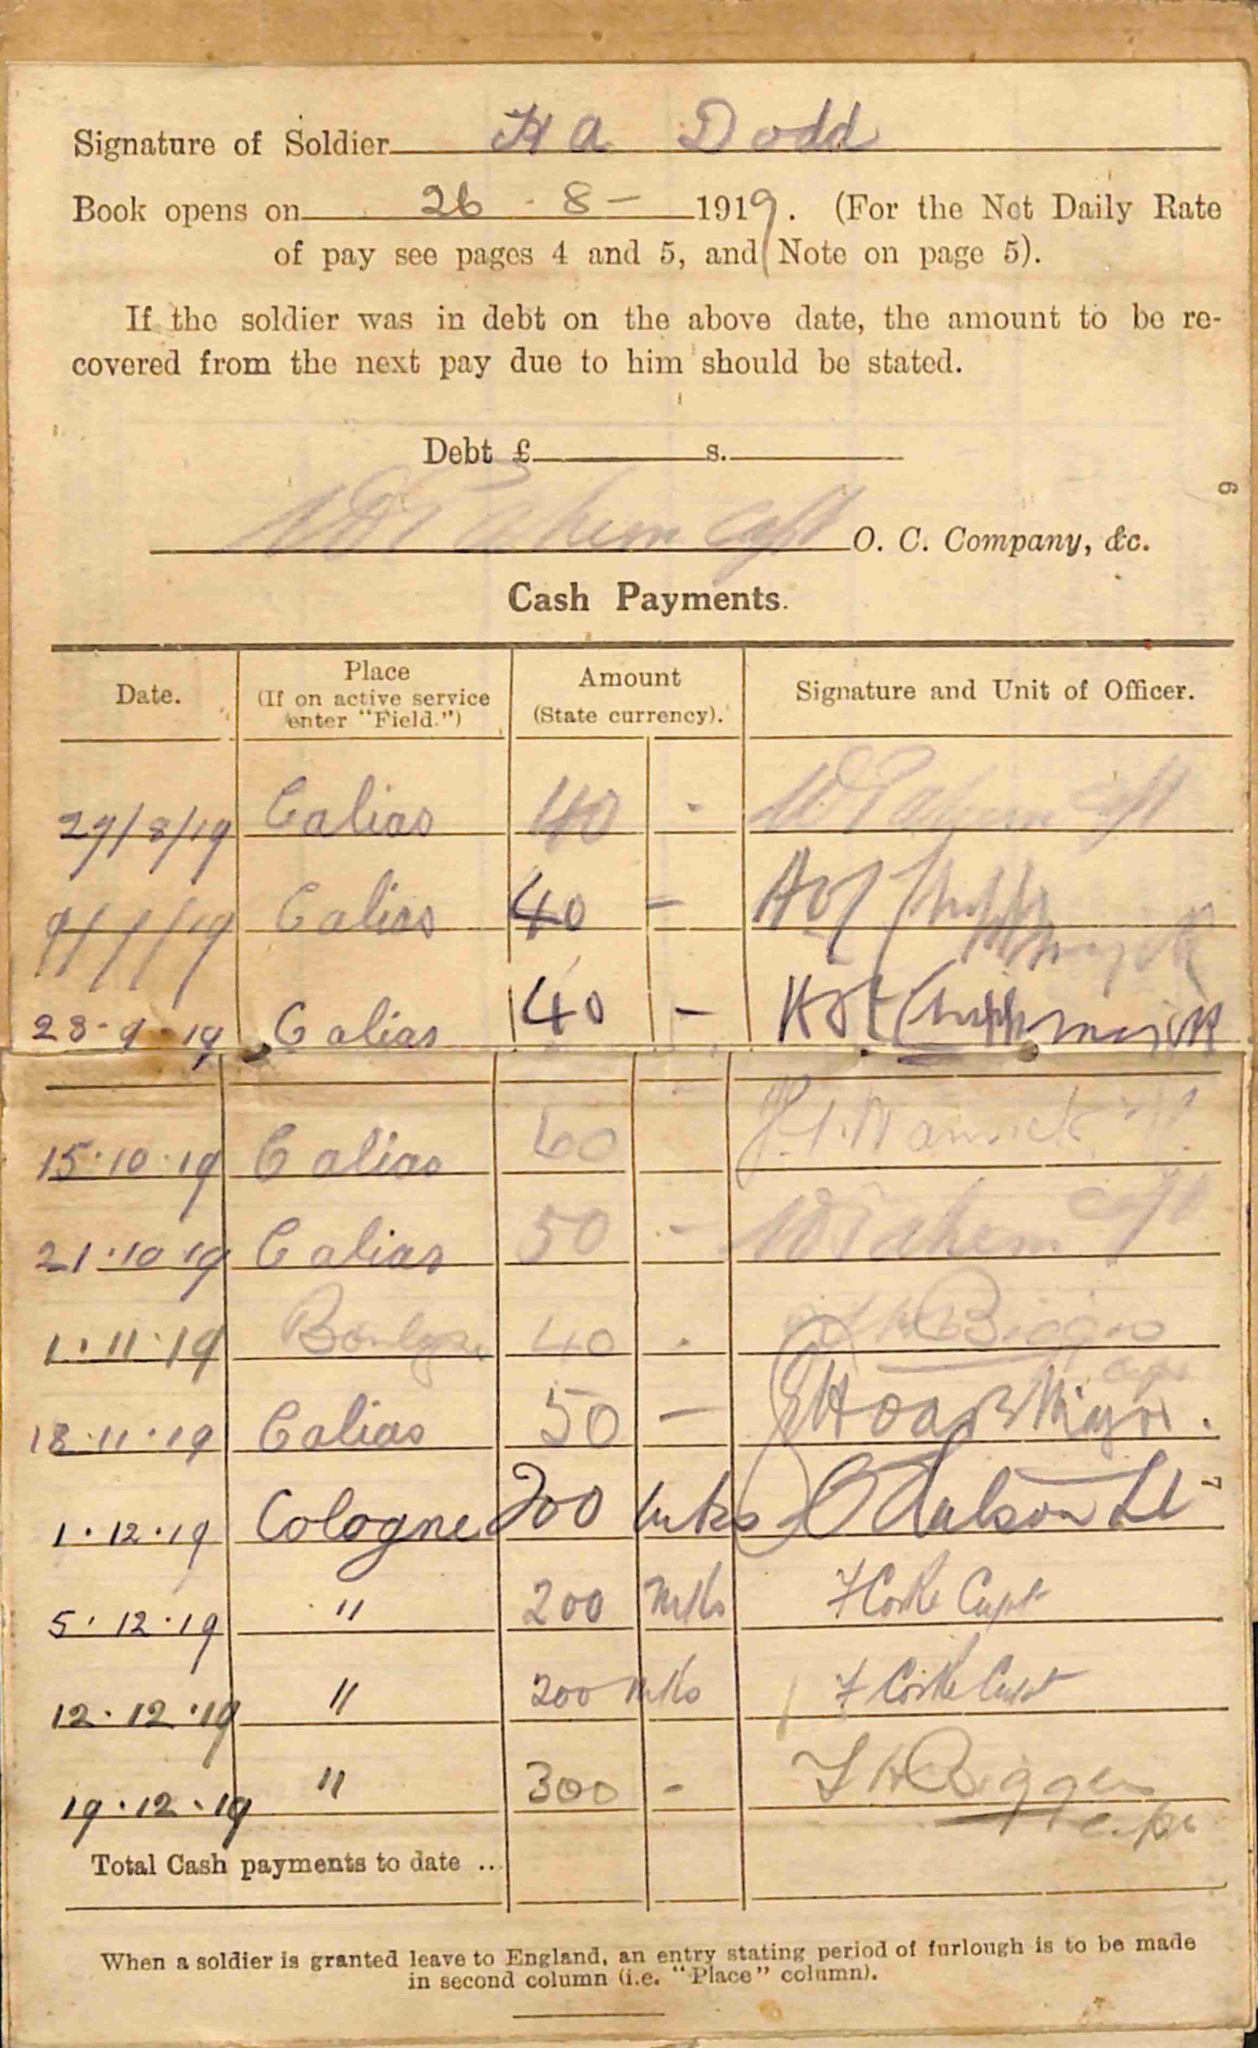 Signature of Soldier H A Dodd
Book opens on 26 - 8 - 1919. (For the Net Daily Rate
of pay see pages 4 and 5, and Note on page 5).
If the soldier was in debt on the above date, the amount to be re-
covered from the next pay due to him should be stated.
Debt £ s.
6
Capt O. C. Company, &c.
Cash Payments.
Date. Place Amount Signature and Unit of Officer.
(If on active service (State currency).
enter "Field.")
27/8/19 Calias 40 - Capt
9/9/19 Calias 40 -
23-9-19 Calias 40 -
15.10.19 Calias
21.10.19 Calias 50 - Capt
1.11.19 40 - Biggs
Capt
18.11.19 Calias 50 - Major.
7
1.12.19 Cologne 200 mks Lt
5.12.19 " 200 mks F Corke Capt
12.12.19 " 200 mks F Corke Capt
19.12.19 " 300 -
Capt
Total Cash payments to date ..
When a soldier is granted leave to England, an entry stating period of furlough is to be made
in second column (i.e. "Place" column).